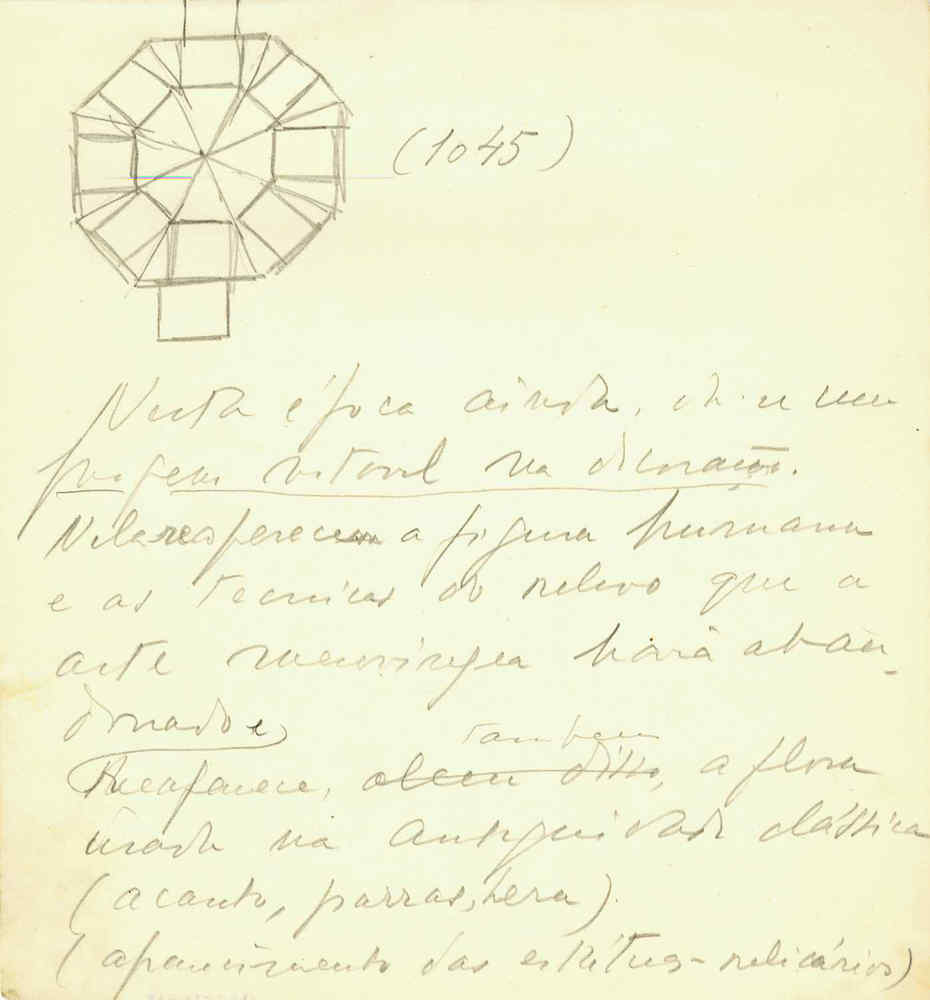 (1045)
Nesta época ainda, dá-se um
progresso notável na decoração.
Nela reaparecem a figura humana
e as tecnicas do relevo que a
arte merovíngea havia aban-
donado e
tambem
Reaparece, alem disso, a flora
usada na antiguidade clássica
(acanto, parras, hera).
(aparecimento das estátuas-relicários)